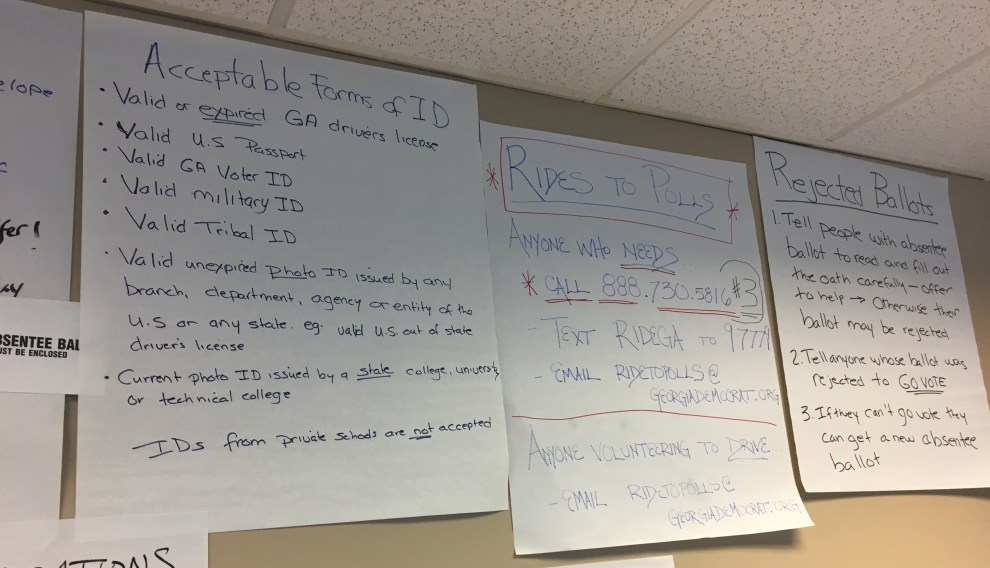 elope
fer!
ABSENTEE BAL
UST BE ENCLOSED
Acceptable Forms of ID
• Valid or expired GA drivers license
• Valid U.S Passport
• Valid GA Voter ID
• Valid military ID
• Valid Tribal ID
• Valid unexpired photo ID issued by any
branch, department, agency or entity of the
U.S or any state. eg. valid U.S. out of state
driver's license
• Current photo ID issued by a state college, university
or technical college
— IDs from private schools are not accepted
* RIDES TO POLLS *
ANYONE WHO NEEDS
* CALL 888.730.5816 #3
- TEXT RIDEGA TO 97779
- EMAIL RIDETOPOLLS@
GEORGIADEMOCRAT.ORG
ANYONE VOLUNTEERING TO DRIVE
- EMAIL RIDETOPOLLS@
GEORGIADEMOCRAT.ORG
Rejected Ballots
1. Tell people with absentee
ballot to read and fill out
the oath carefully – offer
to help → Otherwise their
ballot may be rejected
2. Tell anyone whose ballot was
rejected to GO VOTE
3. If they can't go vote they
can get a new absentee
ballot